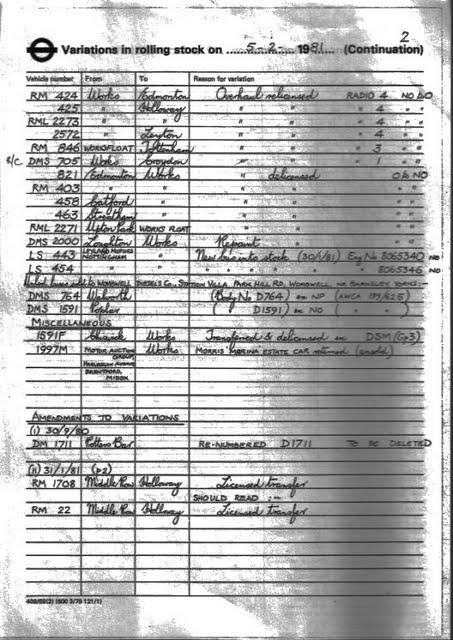 2
Variations in rolling stock on 5-2- 1981 (Continuation)
Vehicle number From To Reason for variation
RM 424 Works Edmonton Overhaul relicensed RADIO 4 NO b/o
425 " Holloway " " " 4 " "
RML 2273 " " " " " 4 " "
2572 " Leyton " " " 4 " "
RM 846 WORKS FLOAT Tottenham " " " 3 " "
S/C DMS 705 Works Croydon " " " 1 " "
821 Edmonton Works " delicensed O/b NO
RM 403 " " " " " "
458 Catford " " " " "
463 Streatham " " " " "
RML 2271 Upton Park WORKS FLOAT " " " "
DMS 2000 Loughton Works Repaint " "
LS 443 LEYLAND MOTORS NOTTINGHAM " New bus into stock (30/1/81) Eng No 8065340 NO
LS 454 " " " " " " " " 8065346 NO
Listed buses sold to WOMBWELL DIESELS Co., STATION VILLA, PARK HILL RD, WOMBWELL, NR BARNSLEY YORKS:-
DMS 764 Walworth (Body No D764) NP (AWCA 199/625)
DMS 1591 Poplar ( " D1591) NO ( " )
MISCELLANEOUS
1591F Chiswick Works Transferred & delicensed DSM (Gp3)
1997M MOTOR AUCTION GROUP, Works MORRIS MARINA ESTATE CAR returned (unsold)
HARLEQUIN AVENUE
BRENTFORD,
MIDDX
AMENDMENTS TO VARIATIONS
(i) 30/9/80
DM 1711 Potters Bar RE-NUMBERED D1711 TO BE DELETED
(ii) 31/1/81 (p2)
RM 1708 Middle Row Holloway Licensed transfer
SHOULD READ :-
RM 22 Middle Row Holloway Licensed transfer
409/69(2) (500 3/79 121/1)